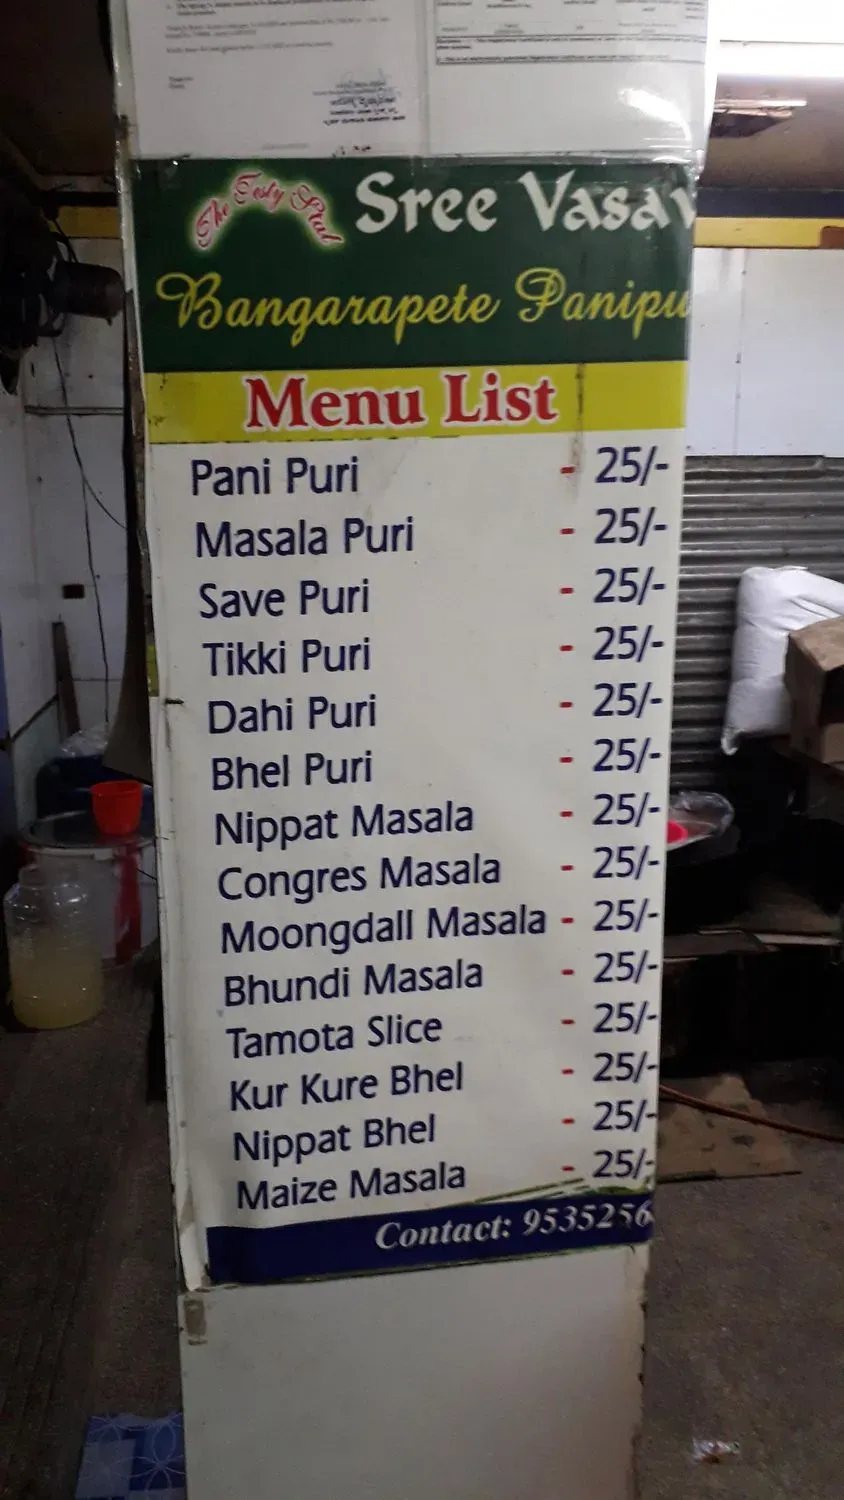 The Testy Stal
Sree Vasav
Bangarapete Panipu
Menu List
Pani Puri - 25/-
Masala Puri - 25/-
Save Puri - 25/-
Tikki Puri - 25/-
Dahi Puri - 25/-
Bhel Puri - 25/-
Nippat Masala - 25/-
Congres Masala - 25/-
Moongdall Masala - 25/-
Bhundi Masala - 25/-
Tamota Slice - 25/-
Kur Kure Bhel - 25/-
Nippat Bhel - 25/-
Maize Masala - 25/-
Contact: 9535256